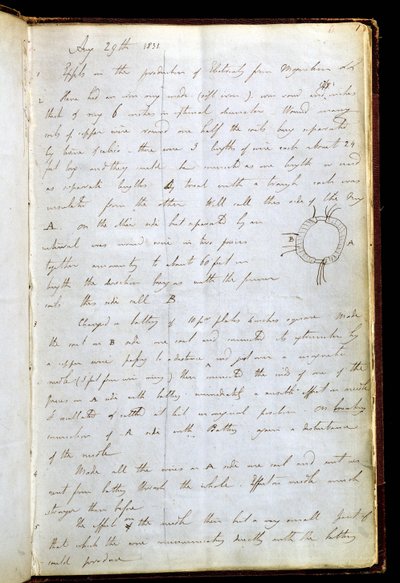 Aug 29th 1831.
1 Expts on the production of Electricity from Magnetism &c &c
2 Have had an iron ring made (soft iron), iron round and 7/8 inches
thick & ring 6 inches in external diameter. Wound many
coils of copper wire round one half the coils being separated
by twine & calico - there were 3 lengths of wire each about 24
feet long and they could be connected as one length or used
as separate lengths. By trial with a trough each was
insulated from the other. Will call this side of the ring
A. on the other side but separated by an
interval was wound wire in two pieces
together amounting to about 60 feet in
length the direction being as with the former
coils this side call B
B
A
3 Charged a battery of 10 pr plates 4 inches square. Made
the coil on B side one coil and connected its extremities by
a copper wire passing to a distance and just over a magnetic
needle (3 feet from iron ring) then connected the ends of one of the
pieces on A side with battery. immediately a sensible effect on needle
It oscillated & settled at last in original position. On breaking
connection of A side with Battery again a disturbance
of the needle.
4 Made all the wires on A side one coil and sent cur-
rent from battery through the whole. Effect on needle much
stronger than before.
5 The effect on the needle then but a very small part of
that which the wire communicating directly with the battery
could produce